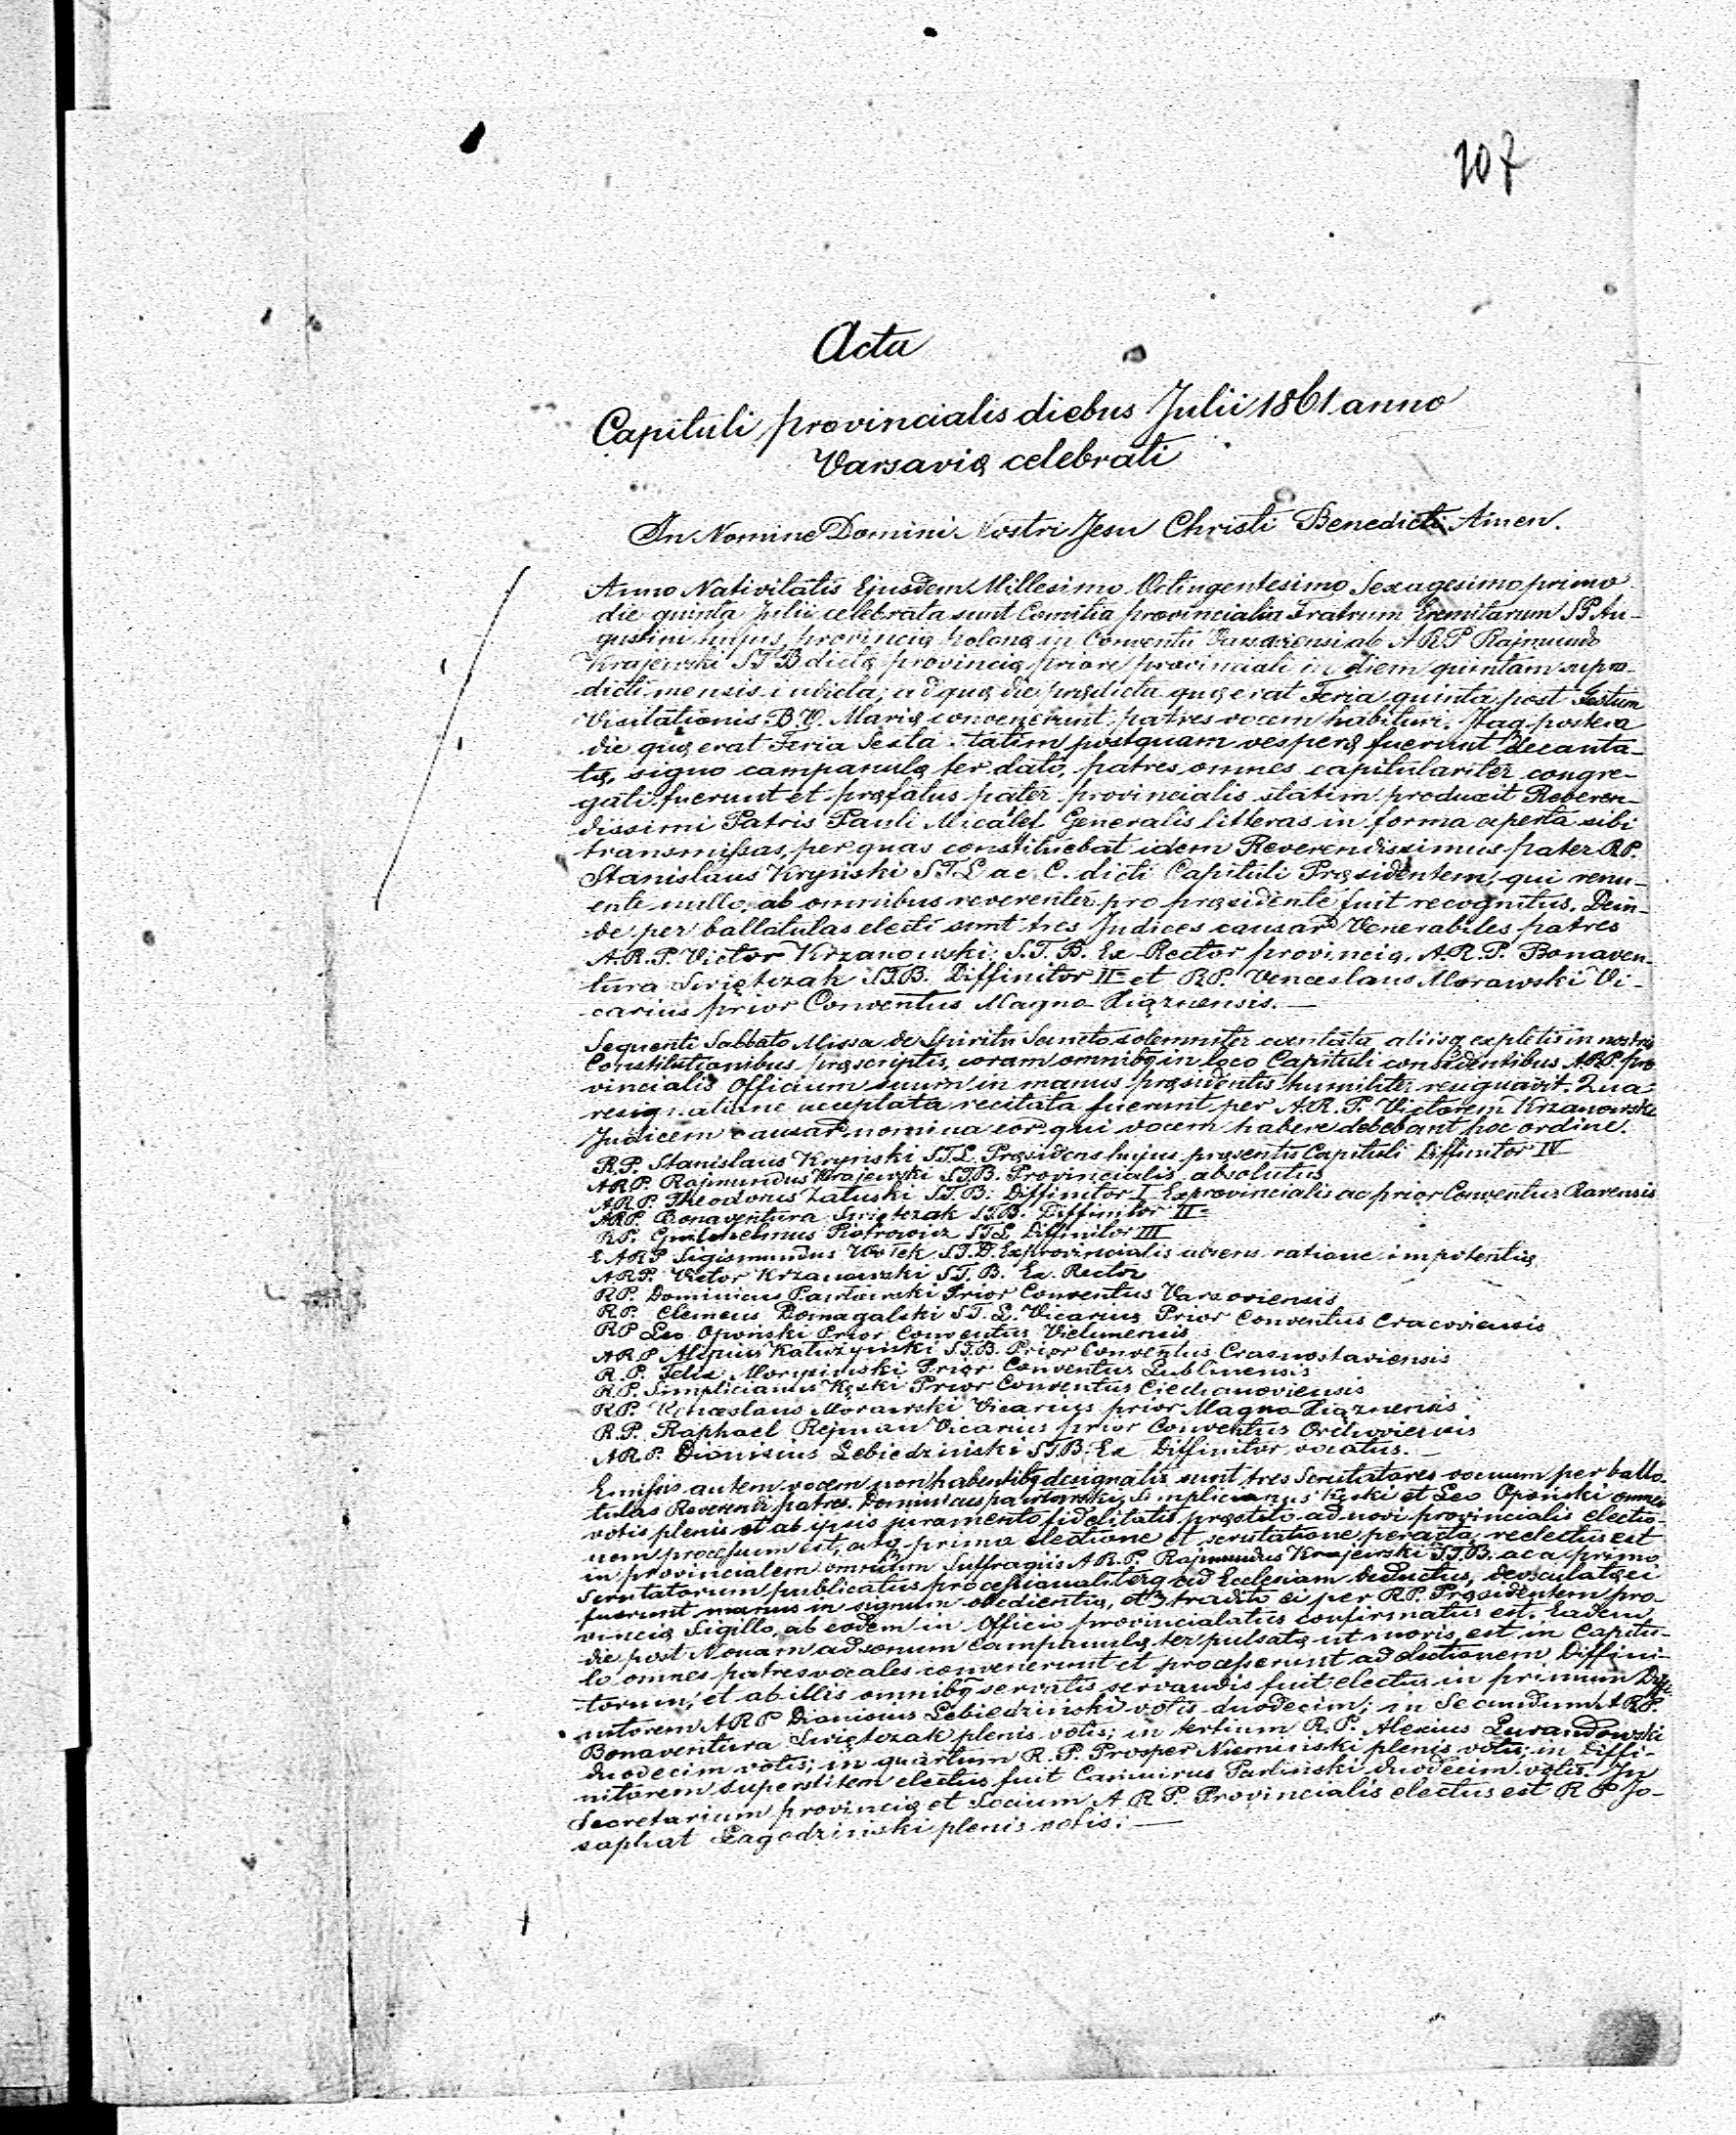 107
Acta
Capituli provincialis diebus Julii 1861 anno
Varsavię celebrati
In Nomine Domini Nostri Jesu Christi Benedicti Amen.
Anno Nativitatis Ejusdem Millesimo Octingentesimo Sexagesimo primo
die quinta Julii celebrata sunt Comitia provincialia Fratrum Eremitarum SP Au-
gustini hujus provincię polonę in Conventu Varsaviensi ab ARP Rajmundo
Krajewski STB dictę provincię priore provinciali in diem quintam supra-
dicti mensis indicta; ad quę die prędicta quę erat Feria quinta post Festum
Visitationis B.V. Marię convenerunt patres vocem habituri. Itaq postera
die quę erat Feria Sexta statim postquam vesperę fuerunt decanta-
tę, signo campanulę ter dato, patres omnes capitulariter congre-
gati fuerunt et pręfatus pater provincialis statim produxit Reveren-
dissimi Patris Pauli Micalef Generalis litteras in forma aperta sibi
transmissas, per quas constituebat idem Reverendissimus pater RP.
Stanislaus Kryński STL ac C. dicti Capituli Pręsidentem, qui renu-
ente nullo, ab omnibus reverenter pro pręsidente fuit recognitus. Dein-
de per ballatulas electi sunt tres Judices causar Venerabiles patres
A.R.P. Victor Krzanowski S.T.B. Ex Rector provincię. A.R.P. Bonaven-
tura Swiętczak STB. Diffinitor II et RP. Venceslaus Morawski Vi-
carius prior Conventus Magno Xiąznensis. —
Sequenti Sabbato Missa de Spiritu Sancto solemniter cantata aliisq expletis in nostris
Constitutionibus pręscriptis, coram omnibq in loco Capituli considentibus ARP. pro
vincialis Officium suum in manus pręsidentis humiliter resignavit. Qua
resignatione acceptata recitata fuerunt per A.R.P. Victorem Krzanowski
Judicem causar nomina eor qui vocem habere debebant hoc ordine.
R.P. Stanislaus Kryński STL Pręsidens hujus pręsentis Capituli Diffinitor IV
ARP. Rajmundus Krajewski STB. Provincialis absolutus
ARP. Theodorus Załuski STB. Diffinitor I Exprovincialis ac prior Conventus Ravensis
ARP. Bonaventura Swiętczak STB. Diffinitor II
RP. Guilhelmus Piotrowicz STL Diffinitor III
E ARP Sigismundus Wołek S.T.D. Exprovincialis absens ratione impotentię
ARP. Victor Krzanowski S.T.B. Ex Rector
RP. Dominicus Pawłowski Prior Conventus Varsoviensis
RP. Clemens Domagalski ST.L. Vicarius Prior Conventus Cracoviensis
RP Leo Opoński Prior Conventus Vielunensis
ARP Alipius Kałużyński STB. Prior Conventus Crasnostaviensis
R.P. Felix Prior Conventus Lublinensis
R.P. Simplicianus Kęski Prior Conventus Ciechanoviensis
RP. Venceslaus Morawski Vicarius prior Magno Xiąznensis
R.P. Raphael Rejman Vicarius prior Conventus Orchoviensis
ARP. Dionisius Lebiedziński STB. Ex Diffinitor vocatus. —
Emissis autem vocem non habentibq designatis sunt tres Scrutatores vocuum per ballo-
tulas Reverendi patres. Dominicus pawłowski, Simplicianus Kęski et Leo Opoński omnes
votis plenis et ab ipsis juramento fidelitatis pręstito ad novi provincialis electio-
nem processum est, atq prima electione et scrutatione peracta reelectus est
in provincialem omnium suffragiis A.R.P. Rajmundus Krajewski STB. ac a primo
Scrutatorum publicatus processionaliterq ad Ecclesiam deductus, deosculatę ei
fuerunt manus in signum obedientię, et tradito ei per RP. Pręsidentem pro-
vincię Sigillo, ab eodem in Officio provincialatus confirmatus est. Eadem
die post Nonam ad sonum campanulę ter pulsatę ut moris est in Capitu-
lo omnes patres vocales convenerunt et processerunt ad electionem Diffini-
torum; et ab illis omnibq servatis servandis fuit electus in primum Diffi-
nitorem ARP Dionisius Lebiedziński votis duodecim; in Secundum ARP.
Bonaventura Swiętczak plenis votis; in tertium R.P. Alexius Lurandowski
duodecim votis; in quartum R.P. Prosper Niemiński plenis votis; in Diffi-
nitorem superstitem electus fuit Casimirus Parliński duodecim votis. In
Secretarium provincię et Socium A R P. Provincialis electus est R P Jo-
saphat Łagodziński plenis votis. —